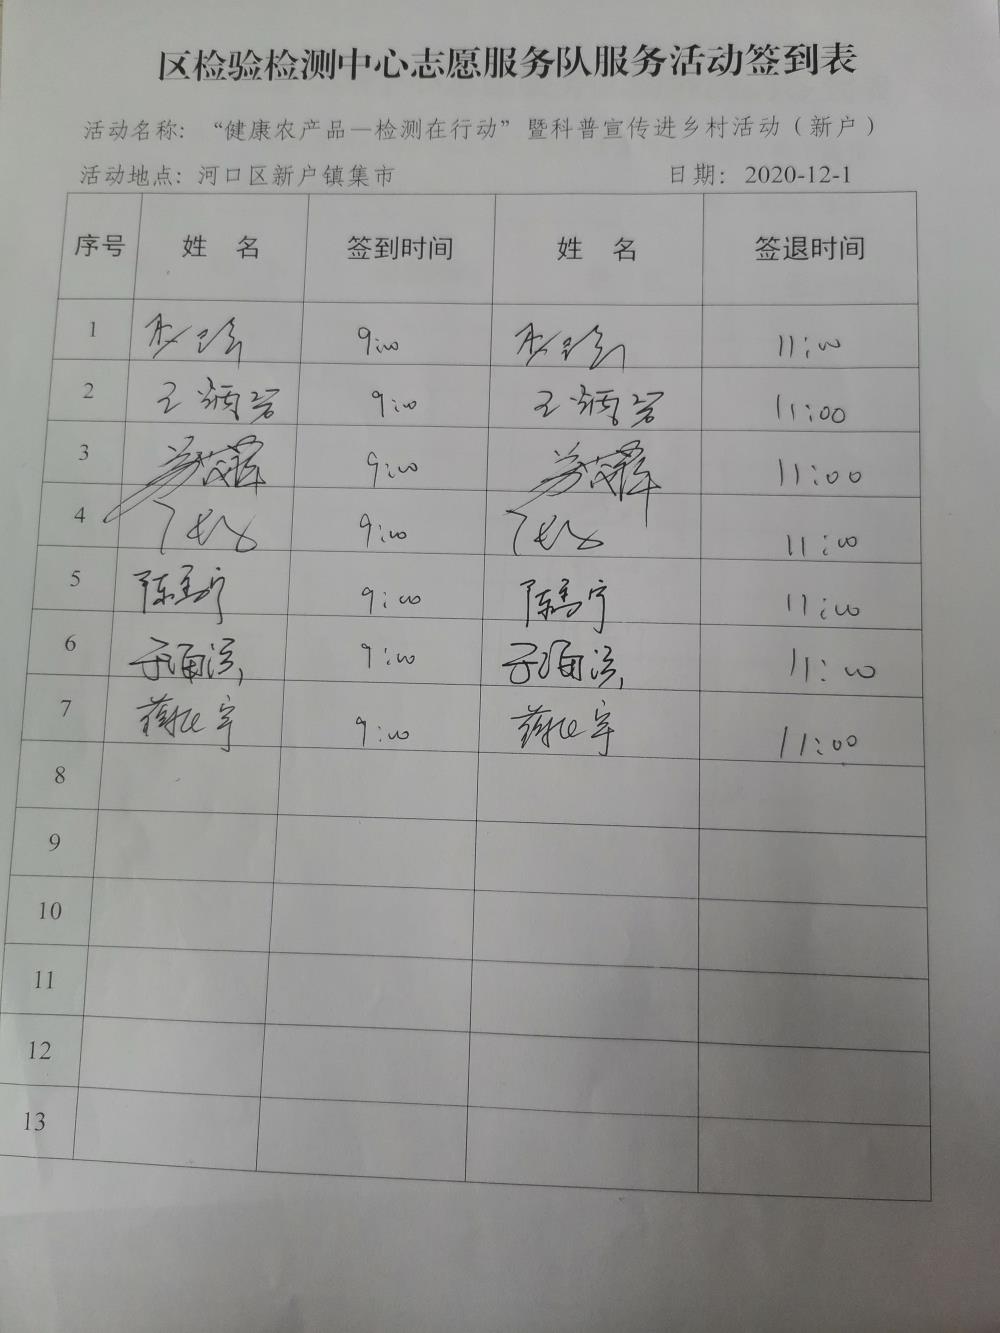 区检验检测中心志愿服务队服务活动签到表
活动名称：“健康农产品—检测在行动”暨科普宣传进乡村活动（新户）
活动地点：河口区新户镇集市 日期：2020-12-1
序号 姓 名 签到时间 姓 名 签退时间
1 9:00 11:00
2 王炳岩 9:00 王炳岩 11:00
3 9:00 11:00
4 9:00 11:00
5 陈秀宁 9:00 陈秀宁 11:00
6 于涌滨 9:00 于涌滨 11:00
7 9:00 11:00
8
9
10
11
12
13